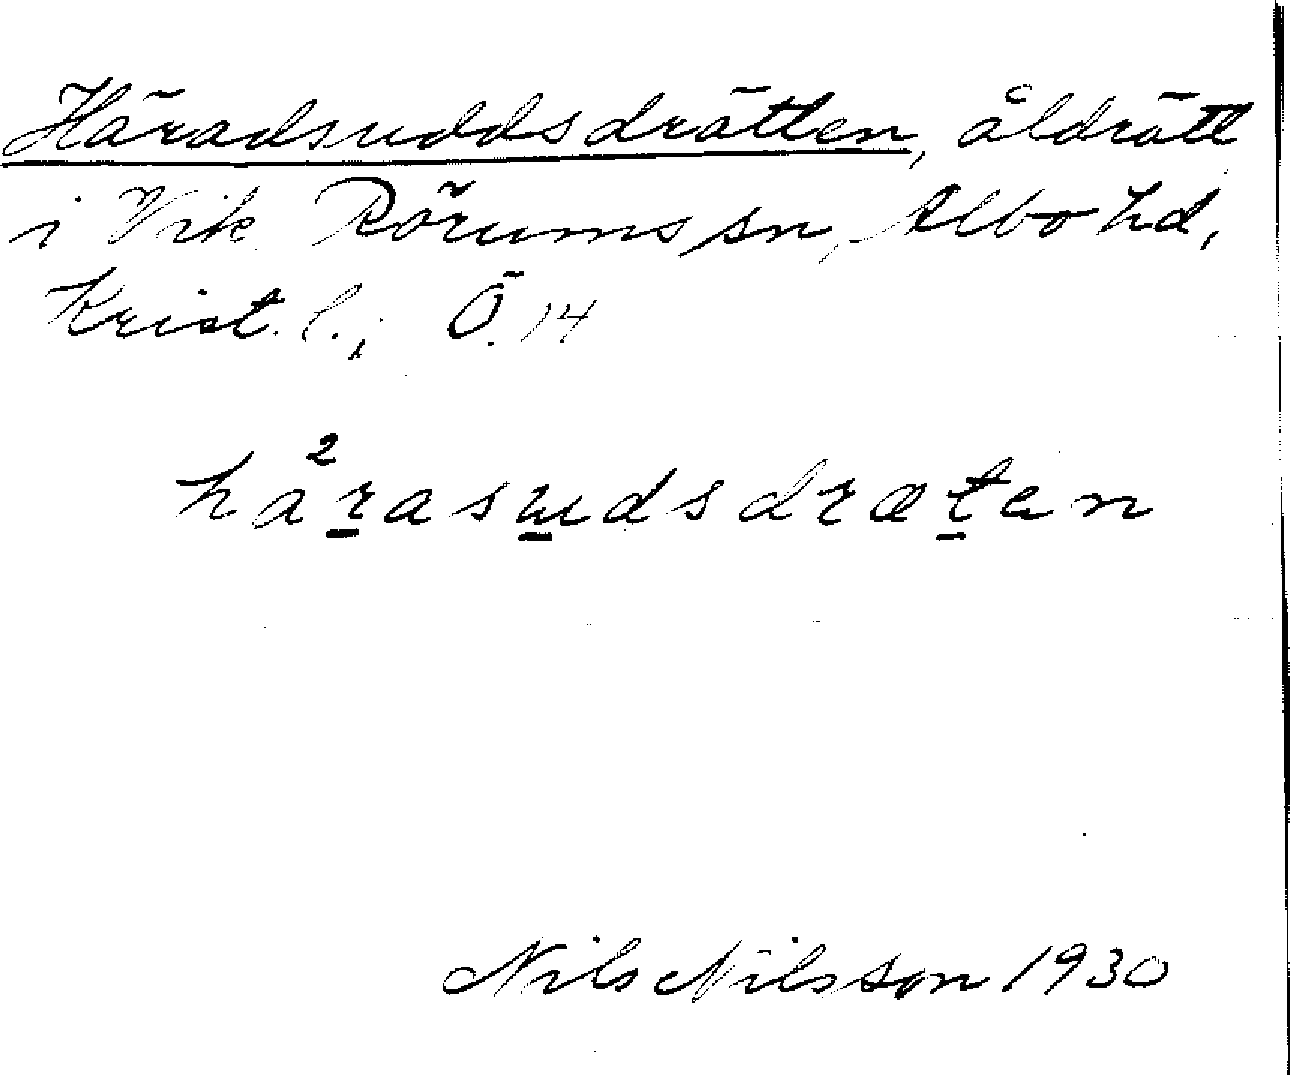 Häradsuddsdrätten, åldrätt
i Vik Rörums sn, Albo hd,
Krist. l.; Ö. 14
2
harasudsdrætan
Nils Nilsson 1930